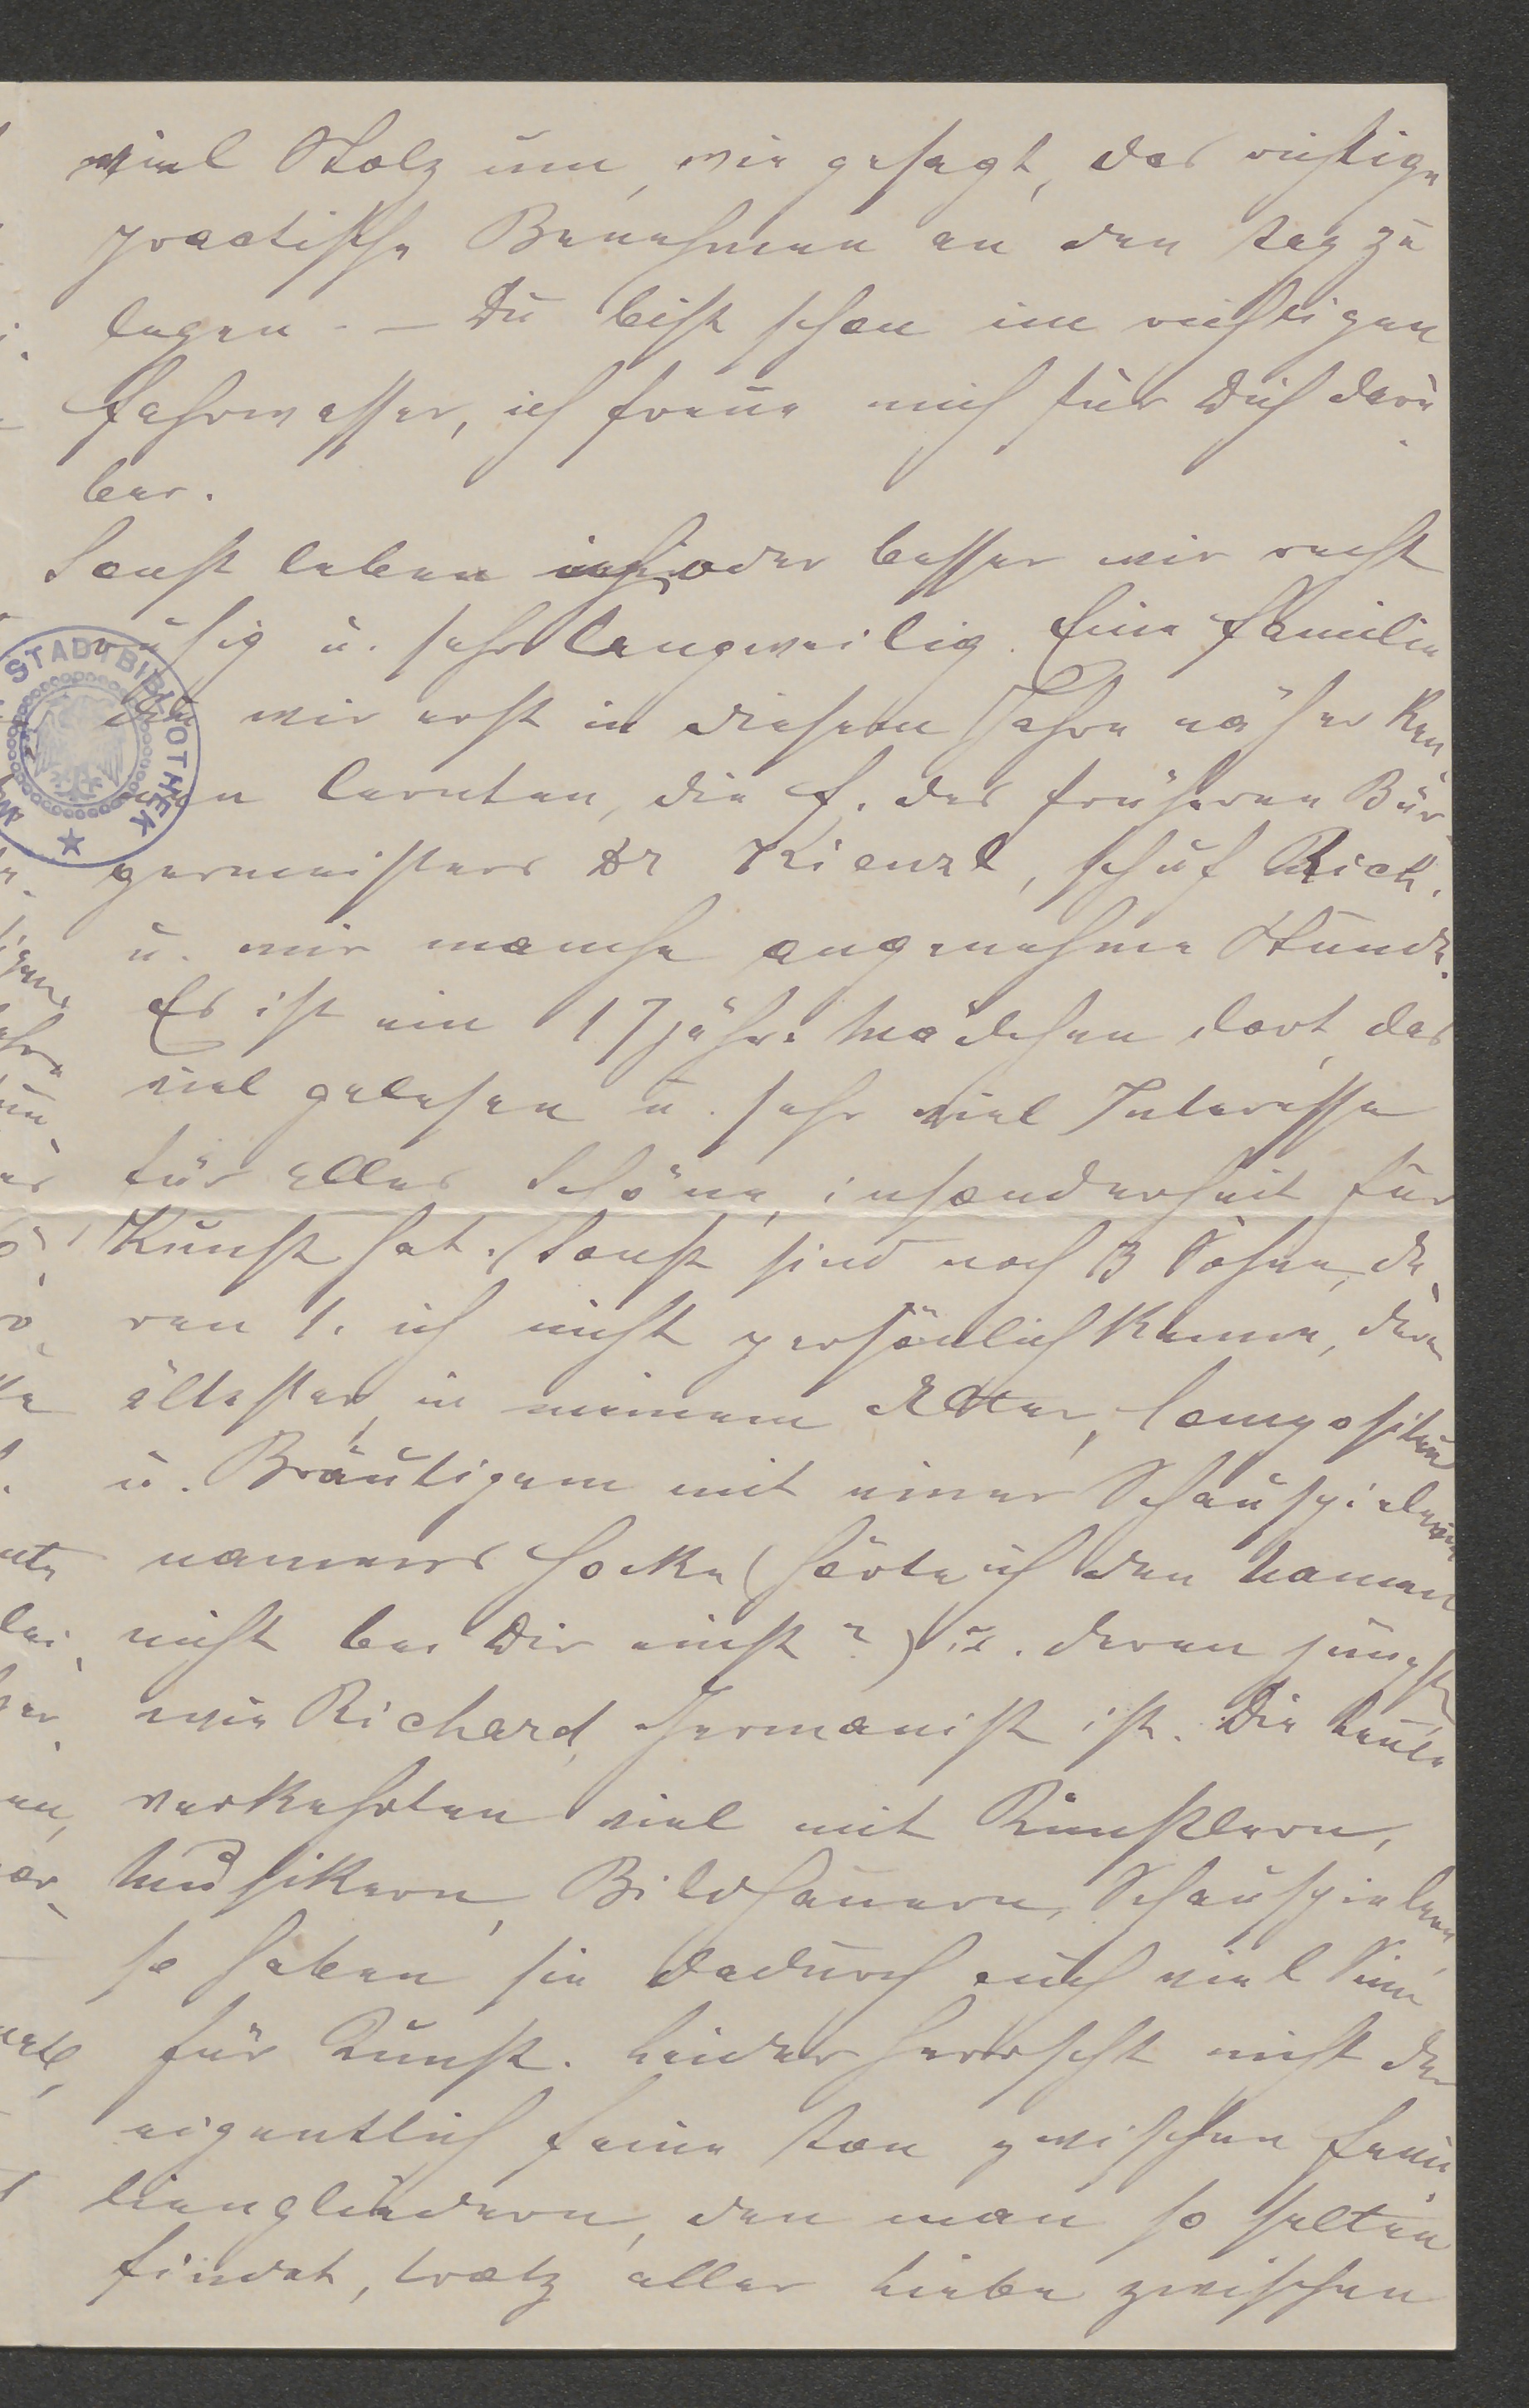 viel Stolz um, wie gesagt, das richtige
practische Benehmen an den Tag zu
legen. – Du bist schon im richtigen
Fahrwasser, ich freue mich für Dich darü
ber.
Sonst leben oder besser wir recht
ruhig u. sehr langweilig. Eine Familie
die wir erst in diesem Jahre näher ken
nen lernten, die F. des früheren Bür-
germeisters Dr Kienzl, schuf Rich.
u. mir manche angenehme Stunde.
Es ist ein 17jähr. Mädchen dort, das
viel gelesen u. sehr viel Interesse
für alles Schöne, insonderheit für
Kunst hat. Sonst sind noch 3 Söhne, de
ren 1. ich nicht persönlich kenne, deren
ältester, in meinem Alter, Compositeur
u. Bräutigam mit einer Schauspielerin
namens Hoke (hörte ich den Namen
nicht bei Dir einst?) u. deren jüngster
wie Richard, Germanist ist. Die Leute
verkehrten viel mit Künstlern,
Musikern, Bildhauern, Schauspielern,
so haben sie dadurch auch viel Sinn
für Kunst. Leider herrscht nicht der
eigentlich feine Ton zwischen Fami
liengliedern, den man so selten
findet, trotz aller Liebe zwischen
STADTBIBLIOTHEK